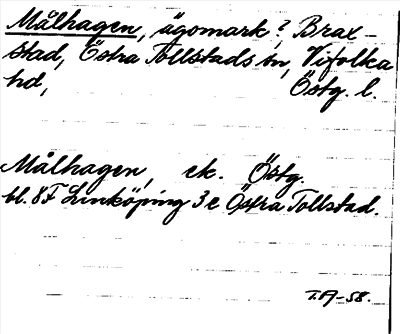 Målhagen, ägomark? Brax-
stad, Östra Tollstads sn, Vifolka
hd, Östg. l.
Målhagen, ek. Östg.
bl. 8F Linköping 3e Östra Tollstad.
T.A-58.